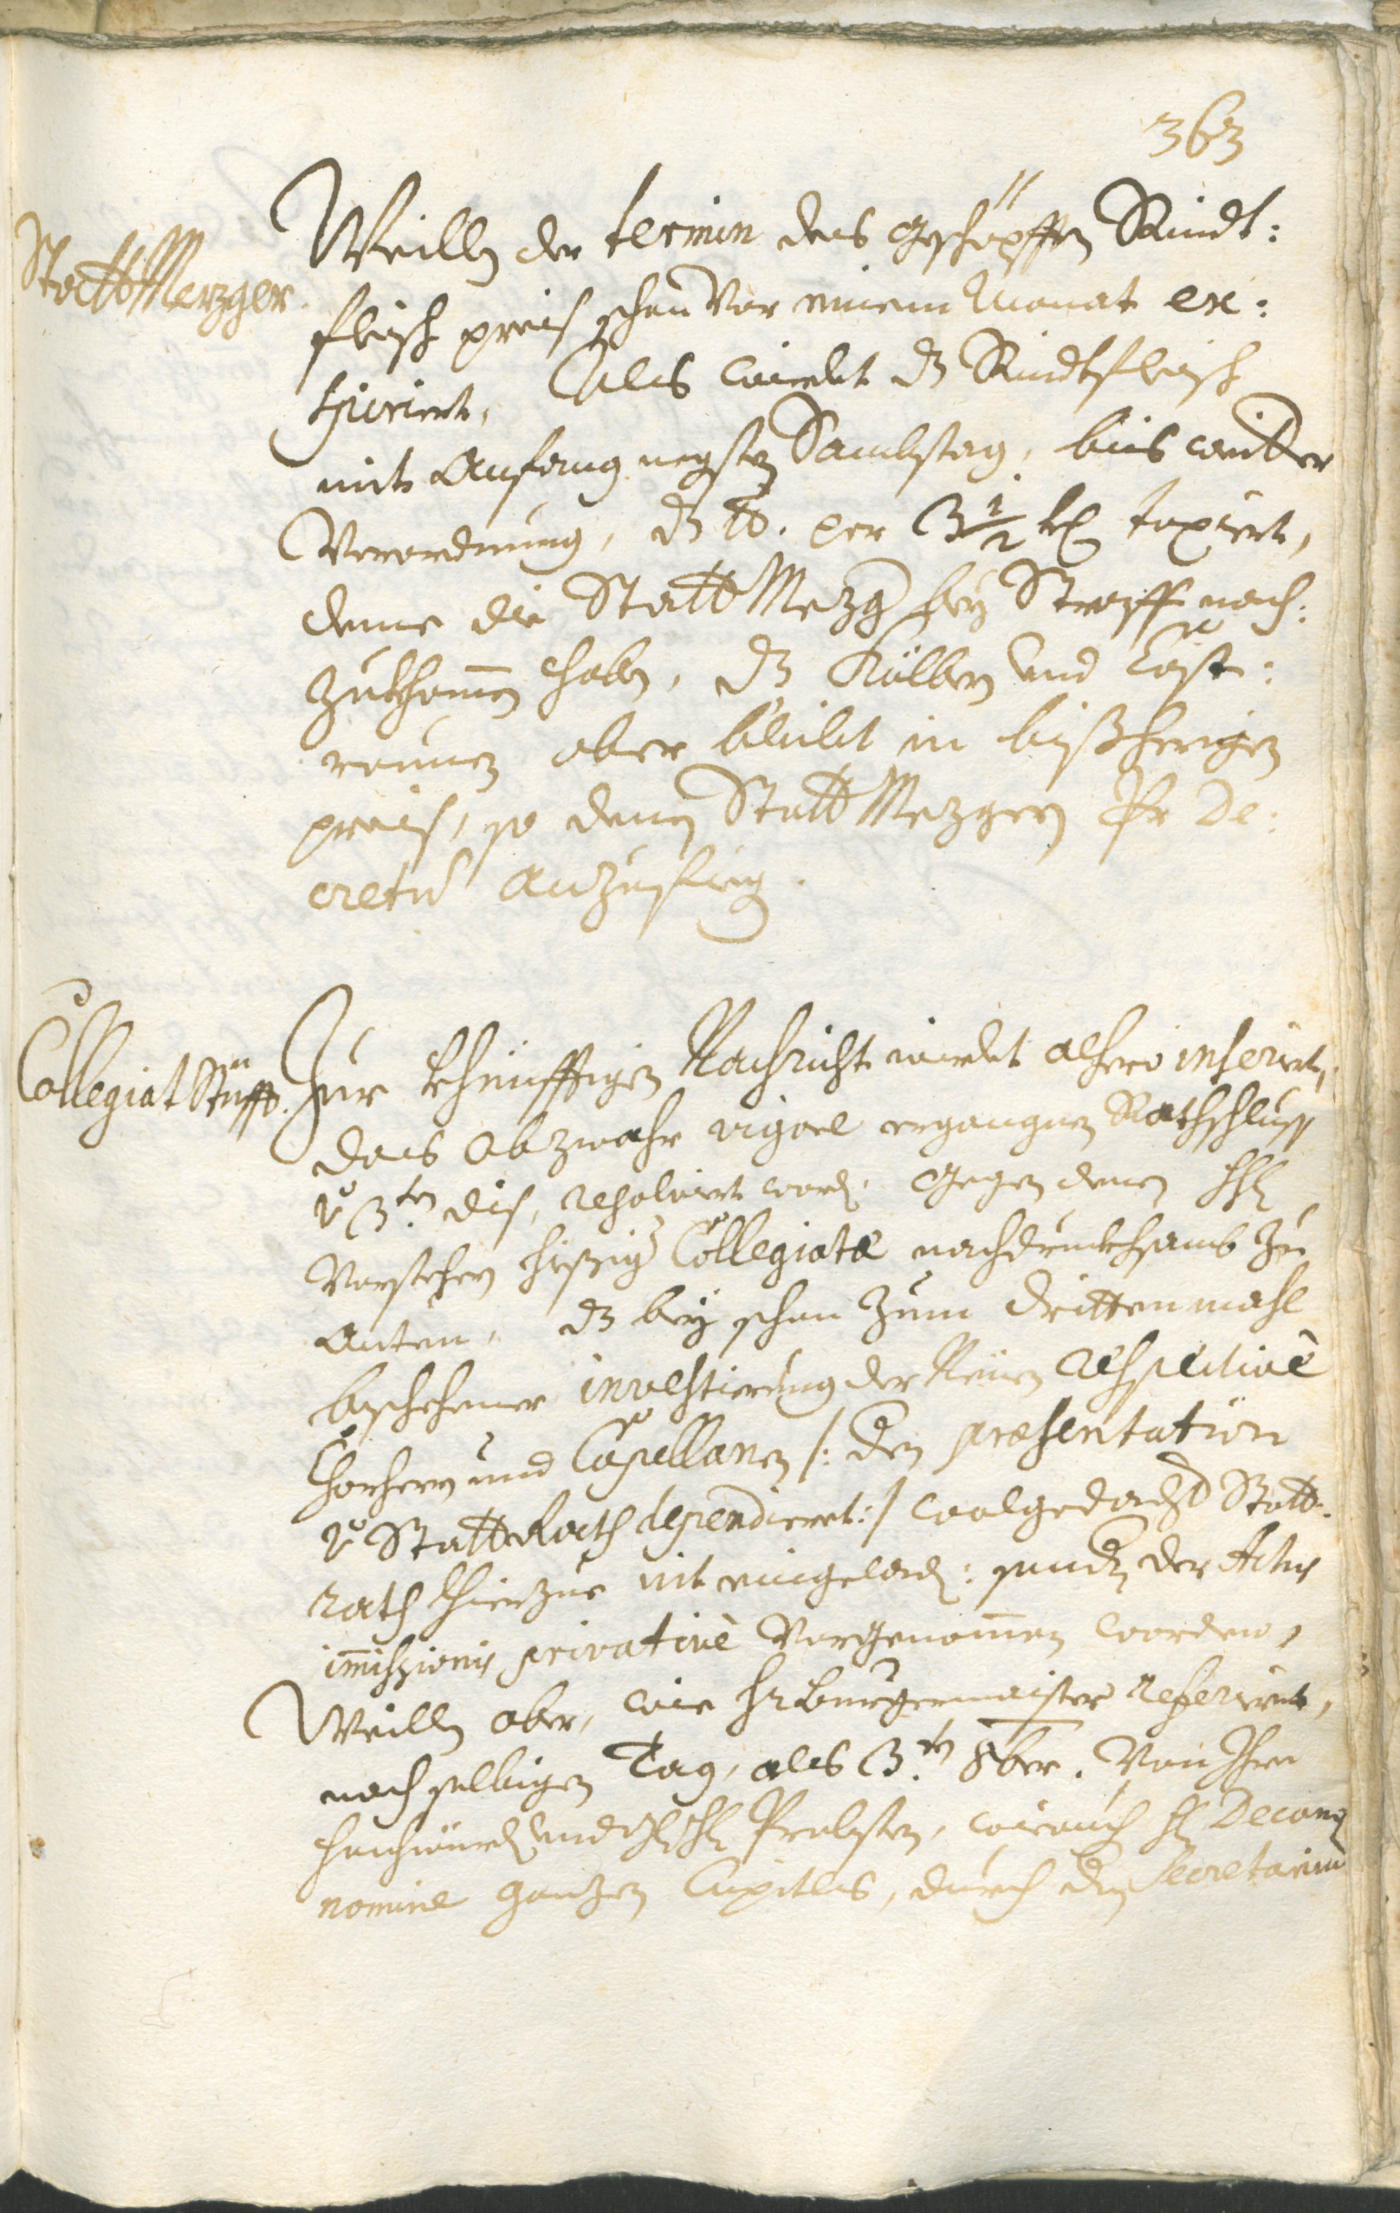 363
StattMezger.
Weillen der termin des geschöpfften Rindt:
fleisch preis schon vor einem Monat ex:
spiriert, Als wirdet dz Rindtfleisch
mit Anfang negsten Sambstag, bis weitter
Verordnung, dz lb. per 3½ kr taxiert,
deme die StattMezger bey Straff nach:
zukhomen haben, dz Kälbern und Cast:
raunen aber bleibt in bishherigen
preis, so denen StattMezgern Per De:
cretum Anzufiegen.
Collegiat Stüfft.
Zur khünfftigen Nachricht wirdet alhero inserirt,
das Obzwahr vigore ergangnen Rathschluss
v 3.ten dis, resolviert worden gegen denen HH
Vorstehern hiesiger Collegiatæ nachdruckhsamb zu
Anten, dz bey schon zum drittenmahl
beschehener investierung der Neuen respectivè
Chorherrn und Capellanen /: den præsentation
v StattRath dependieret :/ wolgedacht Statt:
rath hierzue nit eingeladen: sondern der Actus
immissionis privativè Vorgenommen worden,
Weillen aber, wie Hr Burgermaister referiert,
noch selbigen Tag, als 3.ten 8ber. Von Ihro
hochwürden und HH Probsten, wie auch H Decano
nomine ganzen Capitels, durch den Secretarium